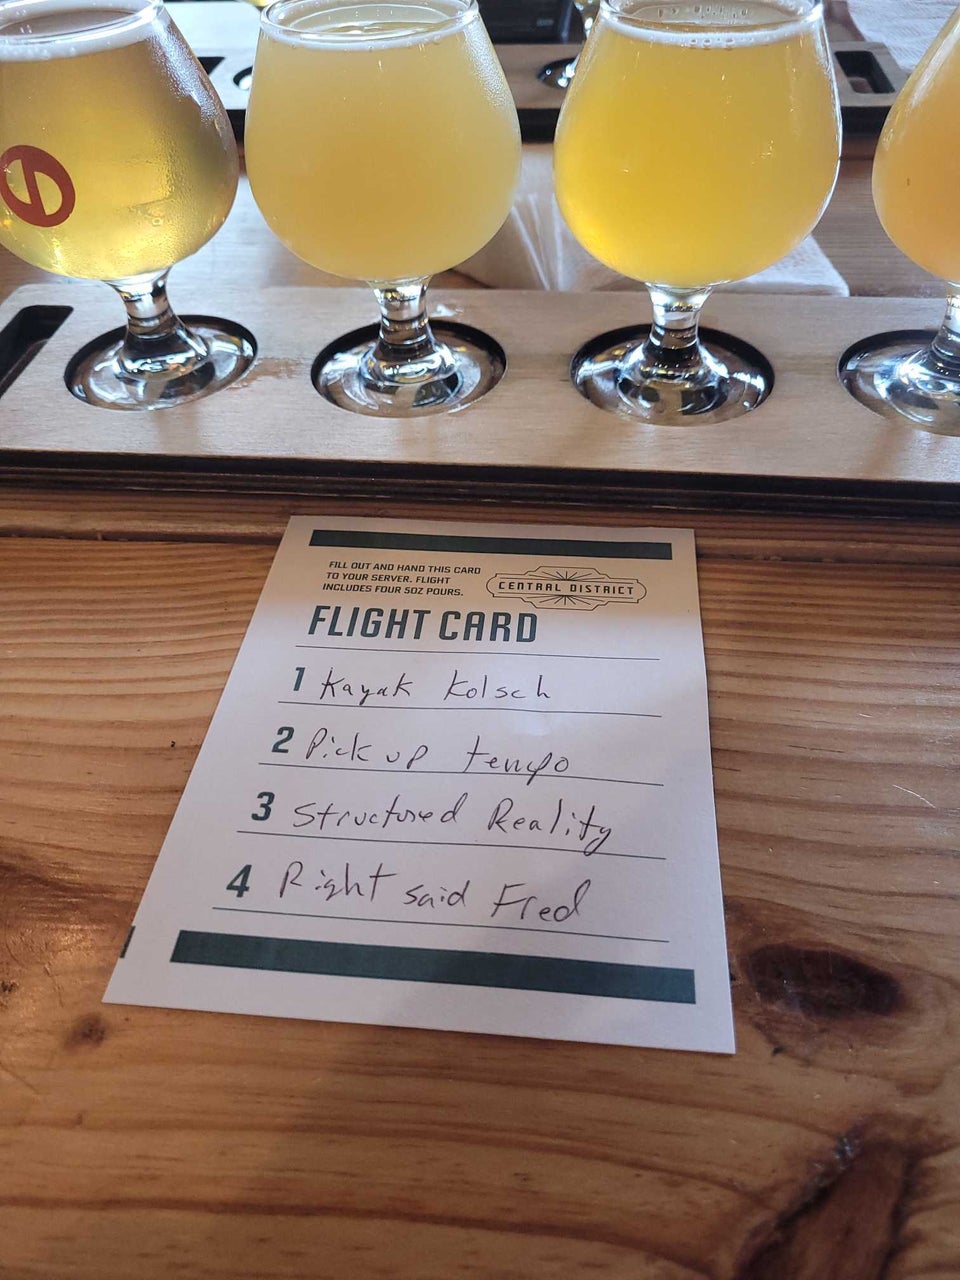 FILL OUT AND HAND THIS CARD
TO YOUR SERVER. FLIGHT
INCLUDES FOUR 5OZ POURS.
CENTRAL DISTRICT
FLIGHT CARD
1 Kayak Kolsch
2 Pick up tempo
3 Structured Reality
4 Right said Fred